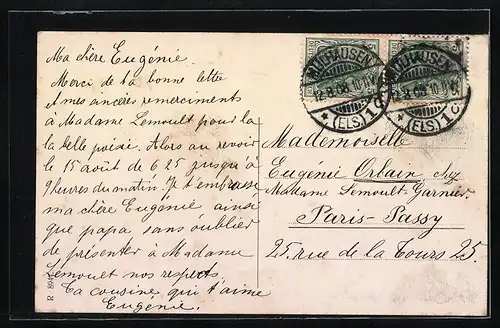 Ma chère Eugénie.
Merci de ta bonne lettre
et mes sincères remerciments
à Madame Lemoult pour la
la belle poisie. Alors au revoir
le 15 août de 6 25 jusqu'à
9 heures du matin. Je t'embrasse
ma chère Eugénie ainsi
que papa sans oublier
de présenter à Madame
Lemoult nos respects.
Ta cousine qui t'aime
Eugénie.
MÜLHAUSEN
(ELS) 1 c
MÜLHAUSEN
(ELS) 1 c
Mademoiselle
Eugénie Orbain chez
Madame Lemoult-Garnier
Paris-Passy
25 rue de la Tours 25.